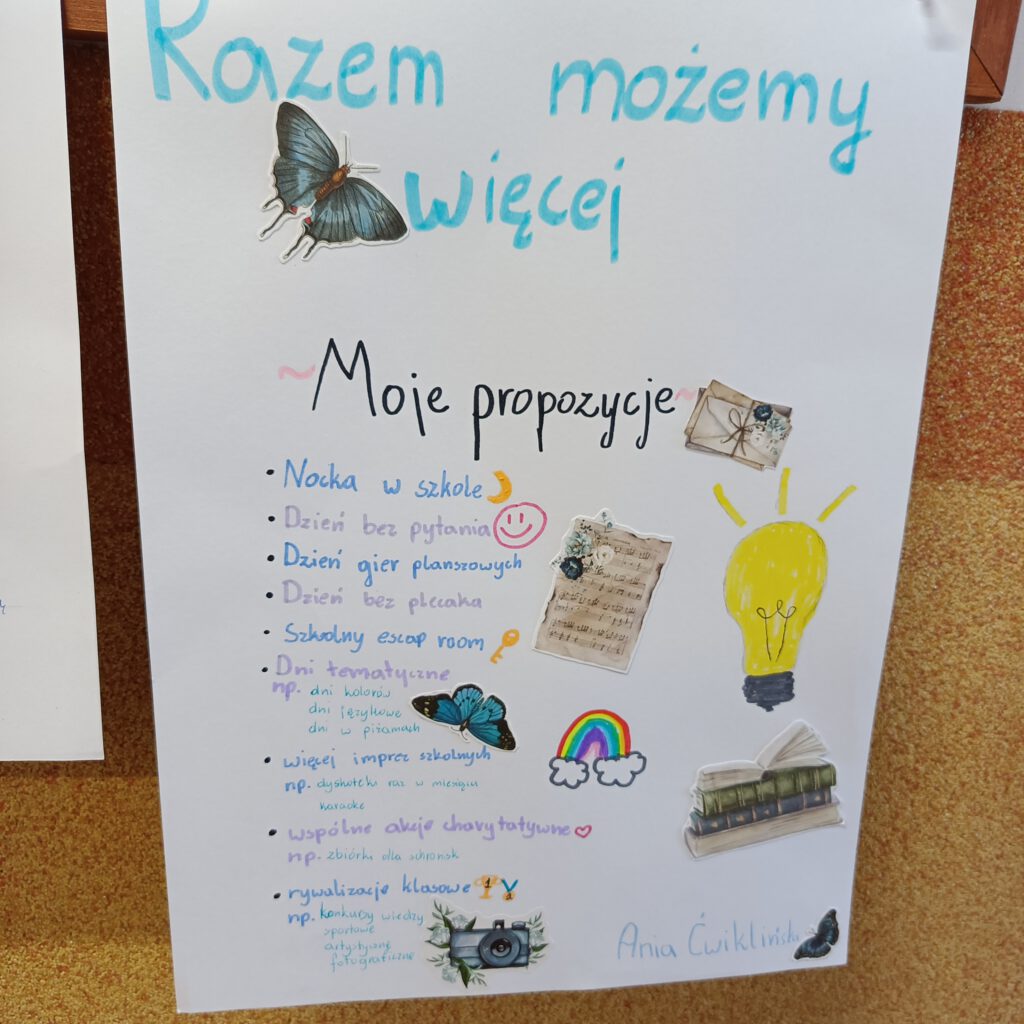 Razem możemy
więcej
~Moje propozycje~
• Nocka w szkole
• Dzień bez pytania
• Dzień gier planszowych
• Dzień bez plecaka
• Szkolny escap room
• Dni tematyczne
np. dni kolorów
dni językowe
dni w piżamach
• więcej imprez szkolnych
np. dyskoteki raz w miesiącu
karaoke
• wspólne akcje charytatywne
np. zbiórki dla schronisk
• rywalizacje klasowe
np. konkursy wiedzy
sportowe
artystyczne
fotograficzne
Ania Ćwiklińska